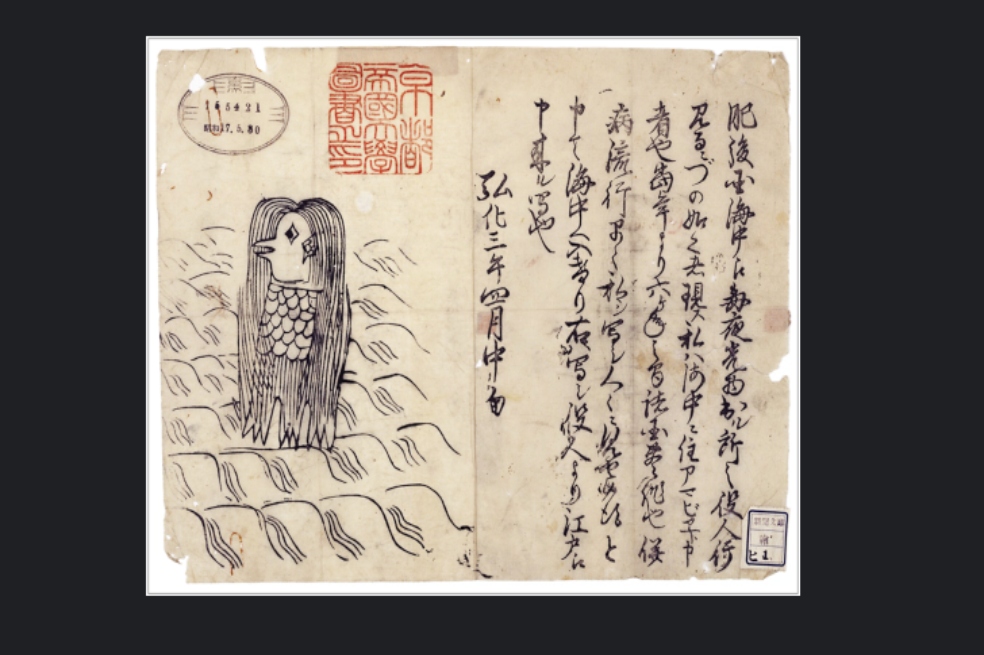 肥後国海中え毎夜光物出ル所之役人行
見るニづの如之者現ス私ハ海中ニ住アマビヱト申
者也当年より六ヶ年之間諸国豊作也併
病流行早々私シ写シ人々ニ見せ候得と
申て海中へ入けり右ハ写シ役人より江戸え
申来ル写也
弘化三年四月中旬
京都
帝國大學
圖書之印